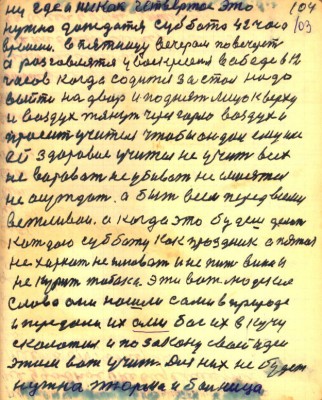 ни сдея никак четвертое это 104
нужно дождатся субботы 42 часа 103
времени. в пятницу вечером повечует
а разговлятся у воскресение в обеде в 12
часов когда садится за стол надо
выйти на двор и поднят лицо к верху
и воздух тянут через горло воздух и
просит учителя чтобы он дал ему
ей здоровие учителя не учит всех
не вароват не убиват не смеятся
не осуждат. а быт всем перед всему
вежливои. а когда это будеш делат
каждою субботу как праздник а потом
не харкат не плеват и не пит вина и
не курит табака. эти вот людские
слова они нашли сами в природе
и передали их они бог их в кучу
сколотил и по закону своей идеи
этим вот учит. Для них не будет
нужна тюрма и болница